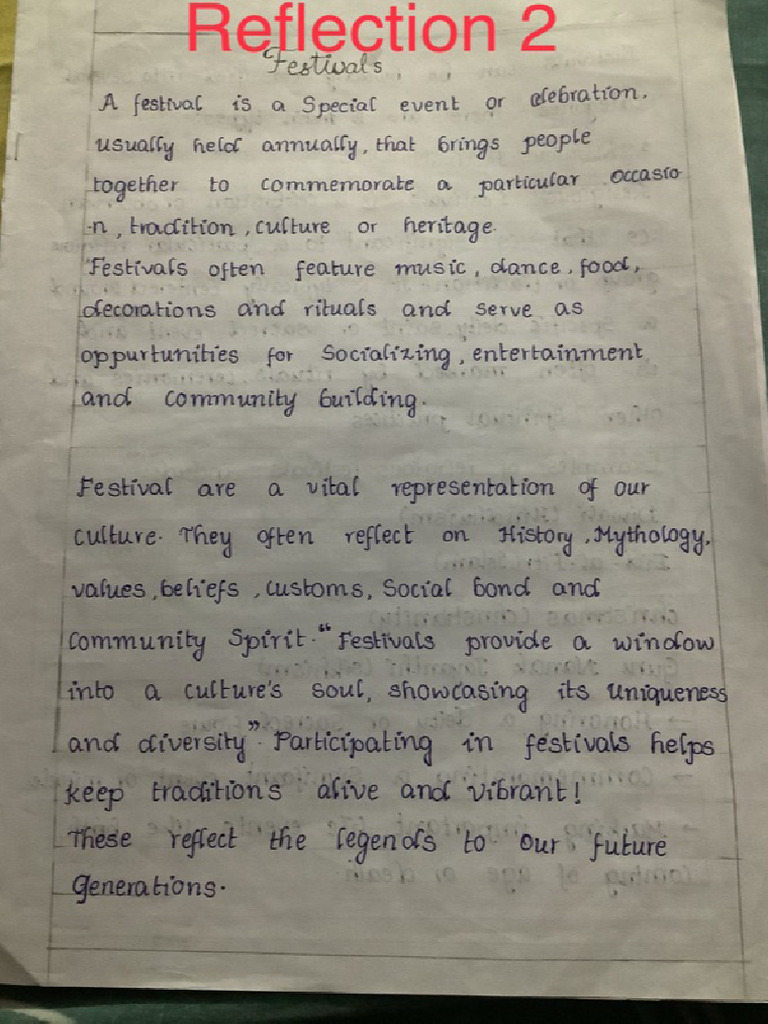 Reflection 2
Festivals
A festival is a Special event or celebration.
usually held annually, that brings people
together to commemorate a particular occasio
-n, tradition, culture or heritage.
Festivals often feature music, dance, food,
decorations and rituals and serve as
oppurtunities for Socializing, entertainment
and community building.
Festival are a vital representation of our
culture. They often reflect on History, Mythology,
values, beliefs, customs, Social bond and
Community Spirit. "Festivals provide a window
into a culture's soul, showcasing its uniqueness
and diversity". Participating in festivals helps
keep tradition's alive and vibrant!
These reflect the legends to our future
Generations.